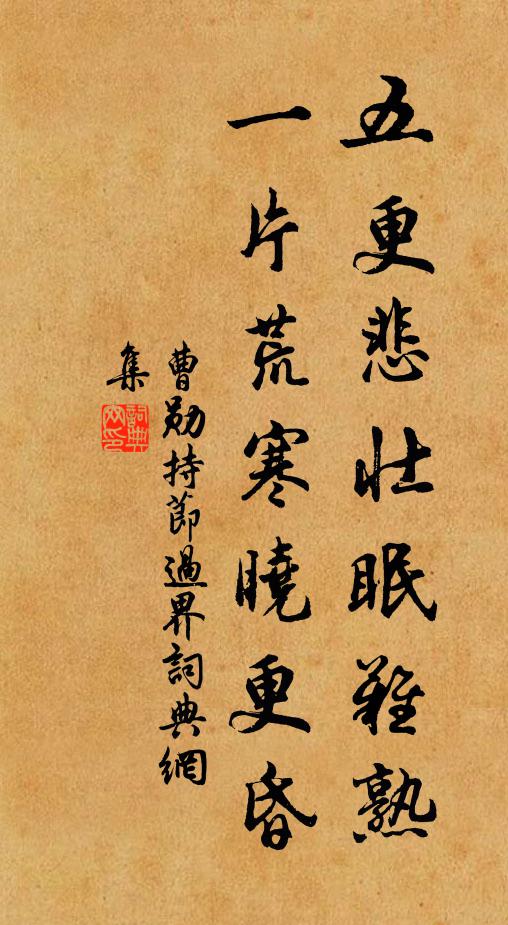 五更悲壯眠難熟
一片荒寒曉更昏
曹勛持節過界詞典網
集
詞典網印